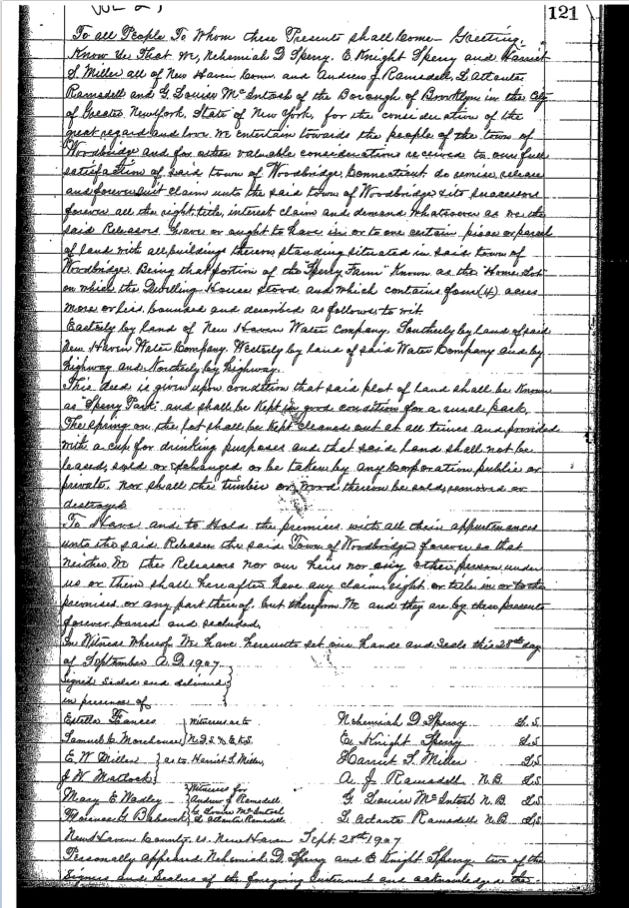 121
To all People To Whom these Presents shall Come – Greeting.
Know Ye That We, Nehemiah D Sperry, E. Knight Sperry and Harriet
S. Miller all of New Haven Conn. and Andrew J. Ramsdell, L Atlanta
Ramsdell and G. Louise McIntosh of the Borough of Brooklyn in the City
of Greater New York, State of New York, for the consideration of the
great regard and love we entertain towards the people of the town of
Woodbridge and for other valuable considerations received to our full
satisfaction of said town of Woodbridge, Connecticut do remise, release
and forever quit claim unto the said town of Woodbridge & its successors
forever all the right, title, interest claim and demand whatsoever as we the
said Releasors have or ought to have in or to one certain piece or parcel
of land with all buildings thereon standing situated in said town of
Woodbridge. Being that portion of the "Sperry Farm" known as the "Home Lot"
on which the Dwelling House stood and which contains four (4) acres
more or less, bounded and described as follows to wit
Easterly by land of New Haven Water Company, Southerly by land of said
New Haven Water Company, Westerly by land of said Water Company and by
highway and Northerly by highway.
This deed is given upon condition that said plot of land shall be known
as "Sperry Park" and shall be kept in good condition for a rural park,
The spring on the lot shall be kept cleaned out at all times and provided
with a cup for drinking purposes and that said land shall not be
leased, sold or exchanged or be taken by any Corporation public or
private, nor shall the timber or wood thereon be sold, removed or
destroyed.
To Have and to Hold the premises with all their appurtenances
unto the said Releasee the said Town of Woodbridge forever so that
neither We the Releasors nor our heirs nor any other person under
us or them shall hereafter have any claim, right or title in or to the
premises or any part thereof, but therefrom We and they are by these presents
forever barred and secluded.
In Witness Whereof, We have hereunto set our hands and seals this 28th day
of September A.D. 1907.
Signed Sealed and delivered
in presence of
Estella Frances } witness as to Nehemiah D Sperry L.S.
Samuel C. Morehouse } N.D.S. & E.K.S. E. Knight Sperry L.S.
E. W. Miller } as to Harriet S. Miller, Harriet S. Miller L.S.
J. W. Matlock } A J Ramsdell N.B. L.S.
Mary E Wadley } Witness for Andrew J Ramsdell G Louise McIntosh N.B. L.S.
Babcock } G Louise McIntosh L Atlanta Ramsdell L Atlanta Ramsdell N.B. L.S.
New Haven County, ss. New Haven Sept. 28th 1907
Personally appeared Nehemiah D. Sperry and E Knight Sperry two of the
Signers and Sealers of the foregoing Instrument and acknowledged the